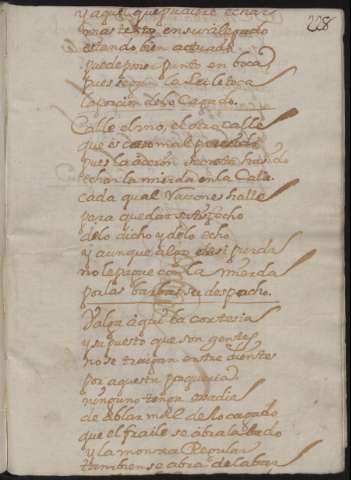 228
y aquel que pudiere echar
mas testo en su aVegado
estando bien actuado
puede poner punto en boca
pues segun la Lei le toca
la porcion de lo Cagado.
Calle el uno, el otro calle
que es caso mal parecido
pues la accion secreta ha sido
echar la mierda en la Calle
cada qual Varones halle
para quedar satisfecho
de lo dicho y de lo echo
y aunque algo de si pierda
no le pegue con la mierda
por las barbas su despacho.
Valga aqui la cortesia
y supuesto que son gentes
no se traigan entre dientes
por aquesta porqueria
ninguno tenga osadia
de ablar mal de lo cagado
que el fraile se abra labado
y la monxa Regular
tambien se abra de labar